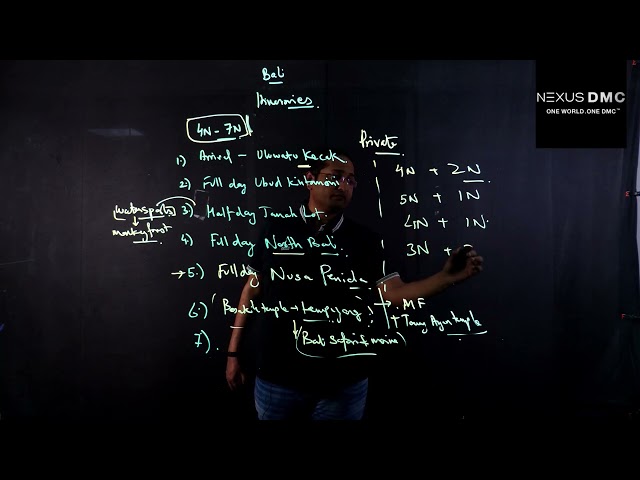 Bali
Itineraries
4N - 7N
1) Arrival - Uluwatu Kecak
2) Full day Ubud Kintamani
watersports 3) Half day Tanah Lot
monkey forest
4) Full day North Bali
5) Full day Nusa Penida
6) Besakih temple → Lempuyang → MF
+ Taman Ayun temple
7)
(Bali Safari & marine)
Private
4N + 2N
5N + 1N
4N + 1N
3N +
NEXUS DMC
ONE WORLD.ONE DMC™